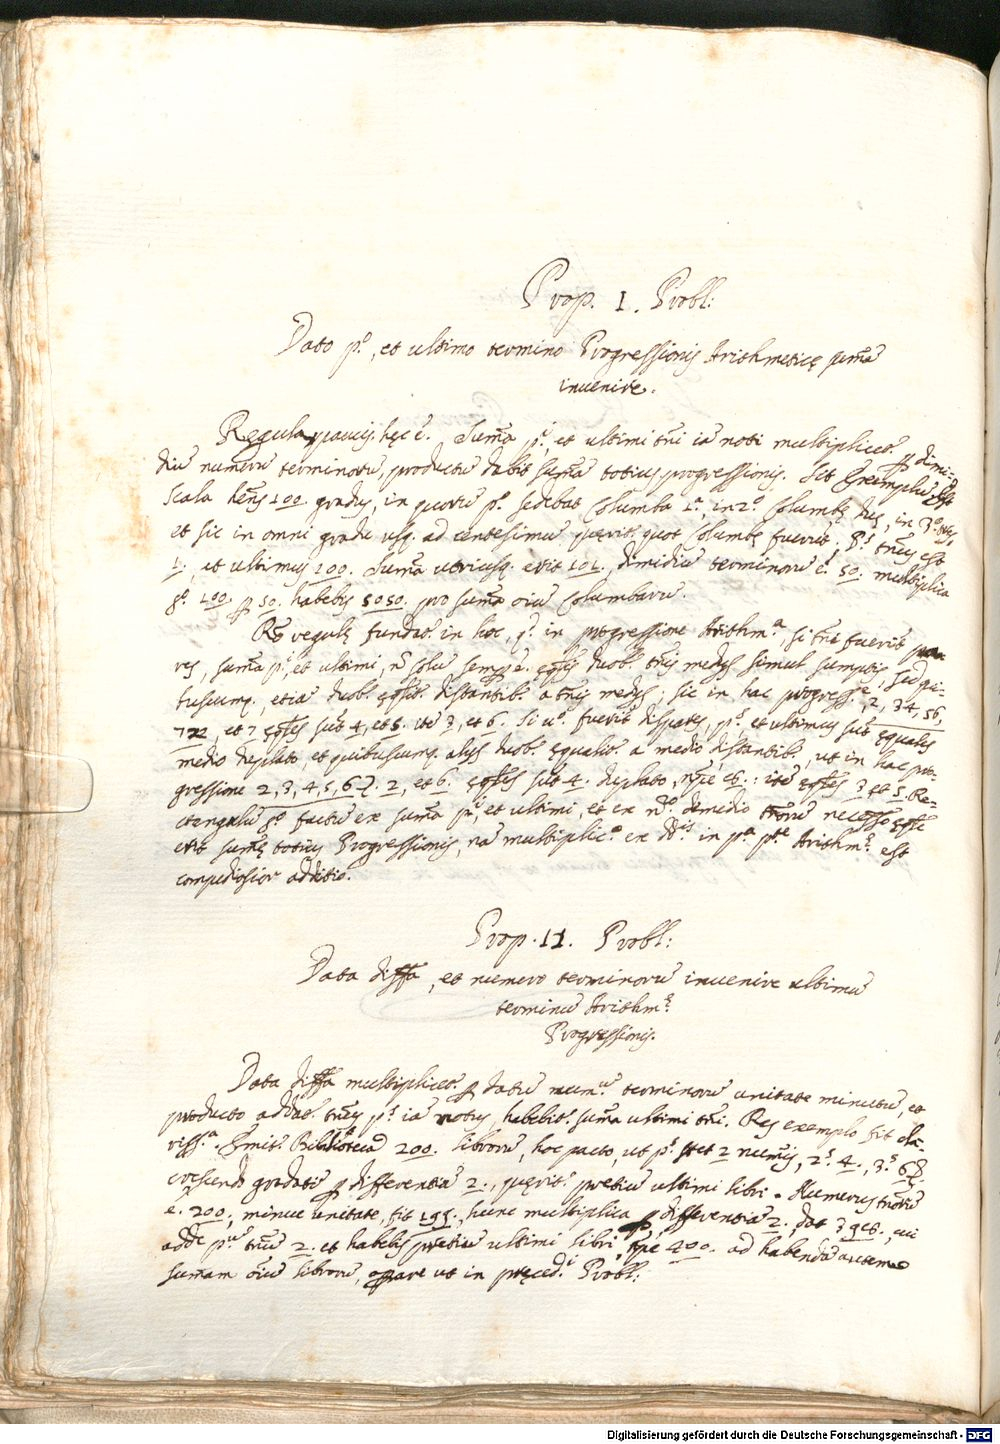 Prop. I. Probl:
Dato p.º, et ultimo termino Progressionis Arithmeticę sum̃a
invenire.
Regula paucis hęc ē. Sum̃a p.i et ultimi tm̃i iā noti multiplicet.r ꝑ dimi-
diū numerū terminorū, productū dabit sum̃a totius progressionis. Sit Exemplū, Est
scala hen̄s 100 gradus, in quorū p.º sedebat Columba 1.a, in 2.º Columbę duę, in 3.º tres,
et sic in omni gradu usq. ad centesimū quęrit. quot Columbę fuerīt; P.s tm̃us est
1. et ultimus 100. Sum̃a utriusq. erit 101. dimidiū terminorū ē 50. multiplica
g.º 100. ꝑ 50. habebis 5050. pro sum̃a oīū Columbarū.
Rõ regulę fundat.r in hoc, q.d in progressione Arithm.a, si tm̃i fuerīt pa-
res, sum̃a p.i et ultimi, nō solū semꝑ ē ęq̃lis duob. tm̃is medijs simul sumptis, sed qui-
buscumq. etiā duob. ęq̃lit. distantib. a tm̃is medijs; sic in hac progress.e, 2, 3 4, 5 6,
7 et 2, et 7 ęq̃les sūt 4, et 5. itē 3, et 6. Si u.º fuerīt dispares, p.s et ultimus sūt ęquales
medio duplato, et quibuscumq. alijs duob. ęqualit. a medio distantib., ut in hac pro-
gressione 2, 3, 4, 5, 6 2, et 6. ęq̃les sūt 4. duplato, nẽpe 8. : itē ęq̃les 3 et 5. Re-
ctangulū g.º factū ex sum̃a p.i et ultimi, et ex n.º dimidio tm̃orū necesse ęq̃le
erit sum̃ę totius Progressionis, nā multiplic.º ex dd.is in p.a pte Arithm.ę est
compēdiosior additio.
Prop. II. Probl:
Data diff̃a, et numero terminorū invenire ultimū
terminū Arithm.ę
Progressionis.
Data diff̃a multiplicet.r ꝑ datū num.ū terminorū unitate minutū, et
producto addat.r tm̃us p.s iā notus, habebit.r sum̃a ultimi tm̃i. Res exemplo fit cla-
riss.a. Emit.r Bibliotecā 200. librorū, hoc pacto, ut p.s stet 2 nūmis, 2.s 4., 3.s 6 &c.
crescendo gradatī ꝑ differentiā 2., quęrit.r pretiū ultimi libri. Numerus tm̃orū
ē 200, minue unitate, fit 199., hunc multiplica ꝑ differentiā 2., dat 398., cui
adde p.ū tm̃ū 2. et habebis pretiū ultimi libri, nẽpe 400. ad habendā autem
sum̃am oīū librorū, opare ut in pręced.i Probl:
Digitalisierung gefördert durch die Deutsche Forschungsgemeinschaft - DFG